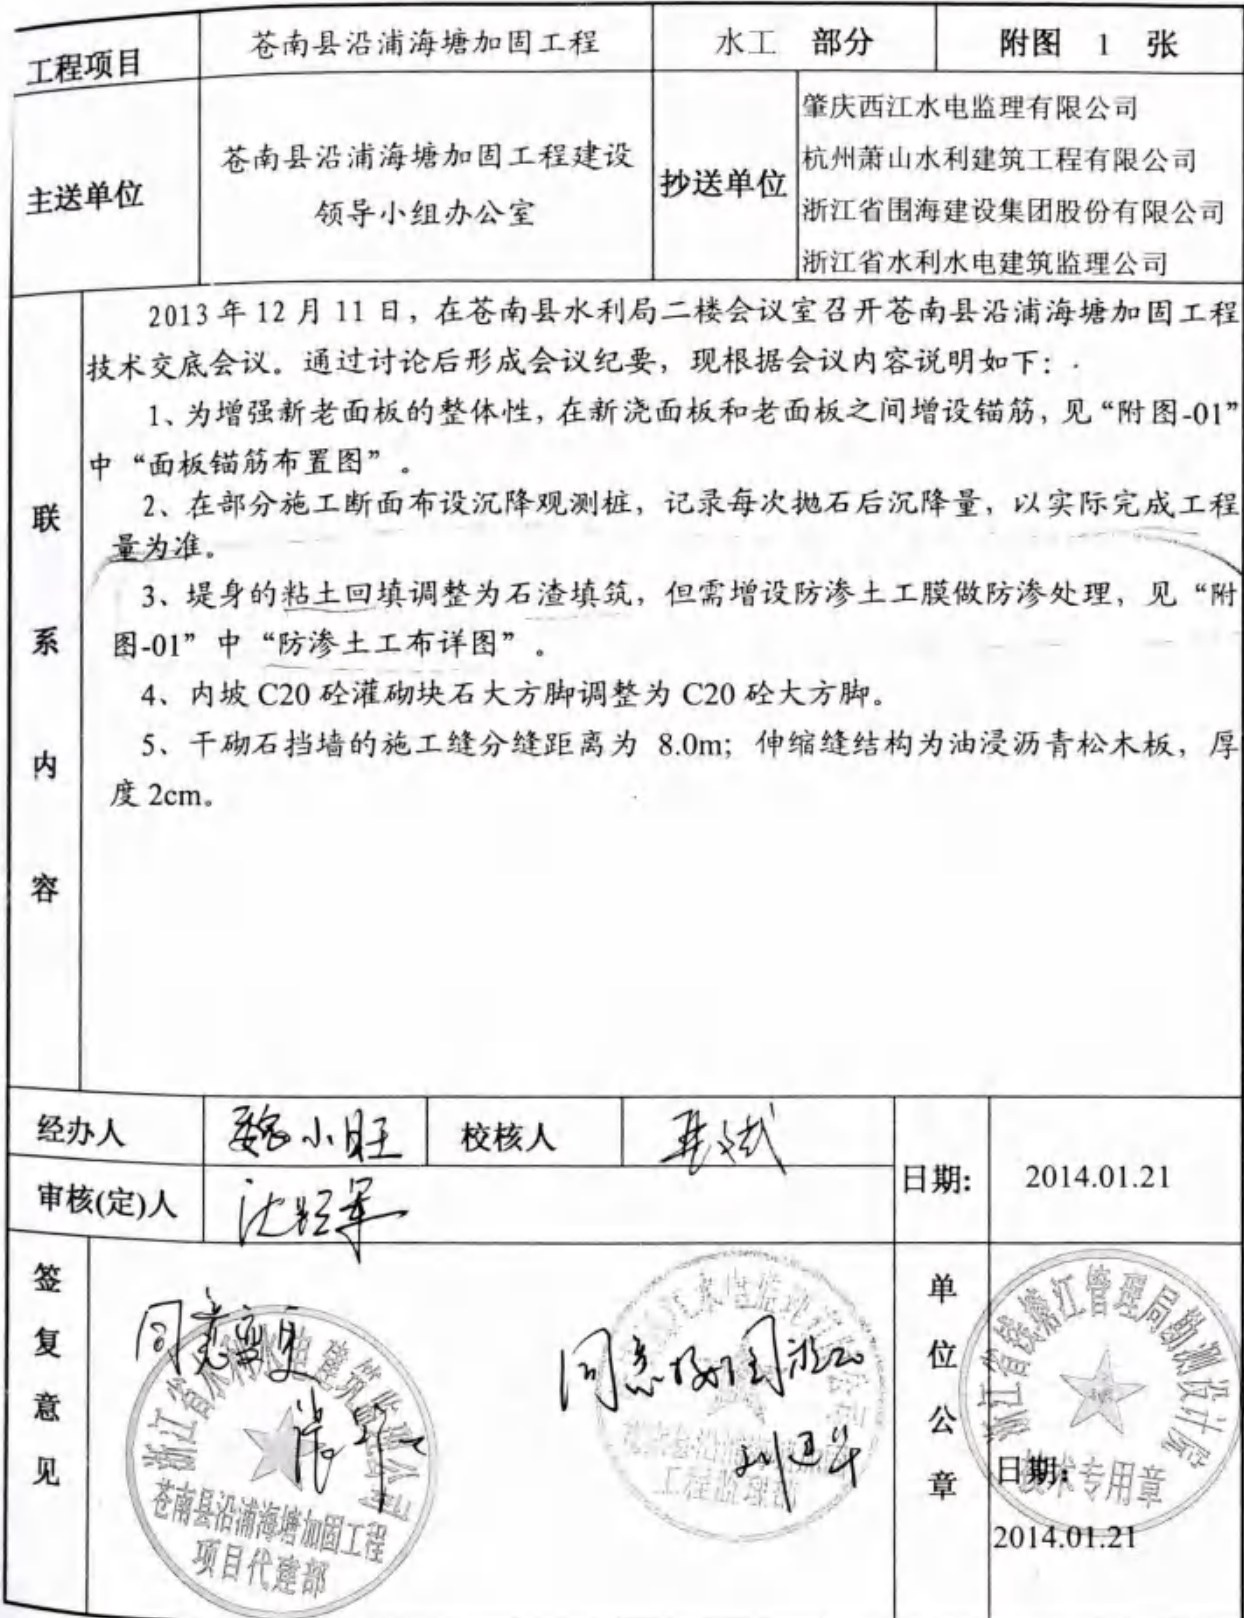 工程项目 苍南县沿浦海塘加固工程 水工 部分 附图 1 张
主送单位 苍南县沿浦海塘加固工程建设
领导小组办公室
抄送单位
肇庆西江水电监理有限公司
杭州萧山水利建筑工程有限公司
浙江省围海建设集团股份有限公司
浙江省水利水电建筑监理公司
联系内容
2013年12月11日，在苍南县水利局二楼会议室召开苍南县沿浦海塘加固工程
技术交底会议。通过讨论后形成会议纪要，现根据会议内容说明如下：
1、为增强新老面板的整体性，在新浇面板和老面板之间增设锚筋，见“附图-01”
中“面板锚筋布置图”。
2、在部分施工断面布设沉降观测桩，记录每次抛石后沉降量，以实际完成工程
量为准。
3、堤身的粘土回填调整为石渣填筑，但需增设防渗土工膜做防渗处理，见“附
图-01”中“防渗土工布详图”。
4、内坡C20砼灌砌块石大方脚调整为C20砼大方脚。
5、干砌石挡墙的施工缝分缝距离为 8.0m；伸缩缝结构为油浸沥青松木板，厚
度2cm。
经办人 魏小旺 校核人
日期: 2014.01.21
审核(定)人
签复意见
同意变更
浙江省水利水电建筑监理公司
苍南县沿浦海塘加固工程
项目代建部
同意按图施工
工程监理部
单位公章
浙江省钱塘江管理局勘测设计院
技术专用章
日期:
2014.01.21